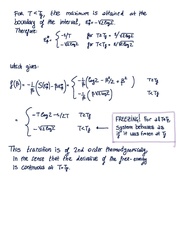 For T < Tg, the maximum is attained at the
boundary of the interval, e*β = -√Log2
Therefore
e*β = { -1/T for T>Tg = 1/√Log2
-√Log2 for T<Tg = 1/√Log2
Which gives:
f(β) = -1/β (S(e*β) - βe*β) = { -1/β (Log2 - β²/4 + β² T>Tg
-1/β (β√Log2) T<Tg
= { -T Log2 - 1/4T T>Tg
-√Log2 T<Tg
FREEZING! For all T<Tg
system behaves as
if it was frozen at Tg
This transition is of 2nd order thermodynamically
in the sense that the derivative of the free-energy
is continuous at T=Tg.